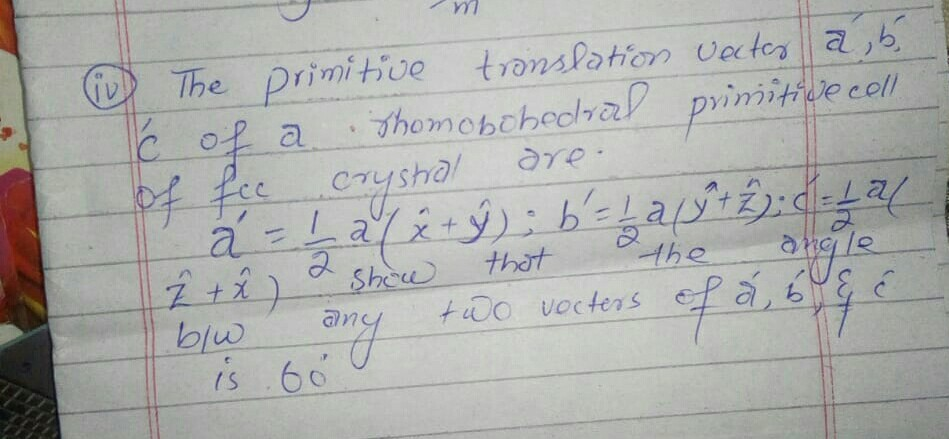 m
(iv) The primitive translation vector a', b',
c' of a rhomobohedral primitive cell
of fcc crystral are.
a' = 1/2 a (x̂ + ŷ) ; b' = 1/2 a (ŷ + ẑ) ; c' = 1/2 a (
ẑ + x̂ ) show that the angle
b/w any two vecters of a', b', & c'
is 60°